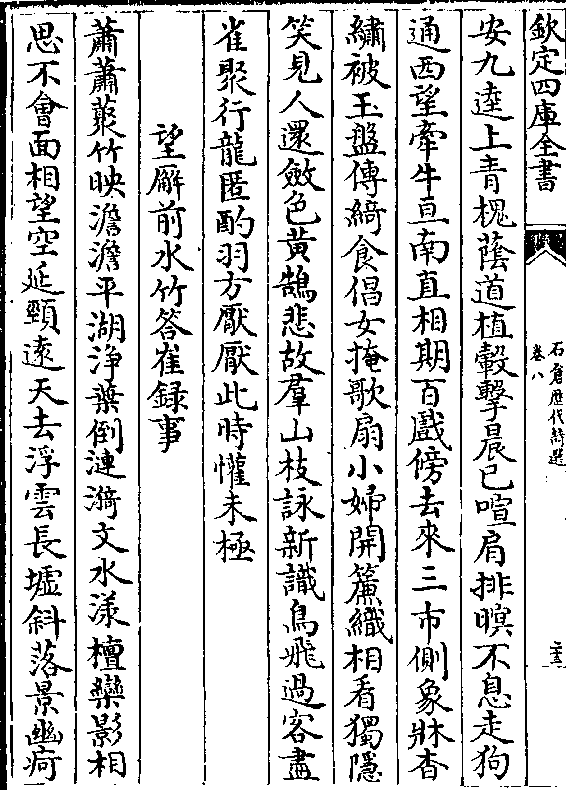 欽定四庫全書
石倉歷代詩選
卷八
二十三
安九逵上青槐蔭道植轂擊晨已喧肩排暝不息走狗
通西望牽牛亘南直相期百戲傍去來三市側象牀杳
繡被玉盤傳綺食倡女掩歌扇小婦開簾織相看獨隱
笑見人還斂色黃鵠悲故羣山枝詠新識烏飛過客盡
雀聚行龍匿酌羽方厭厭此時懽未極
望廨前水竹答崔録事
蕭蕭藂竹映澹澹平湖淨葉倒漣漪文水漾檀欒影相
思不會面相望空延頸遠天去浮雲長墟斜落景幽痾